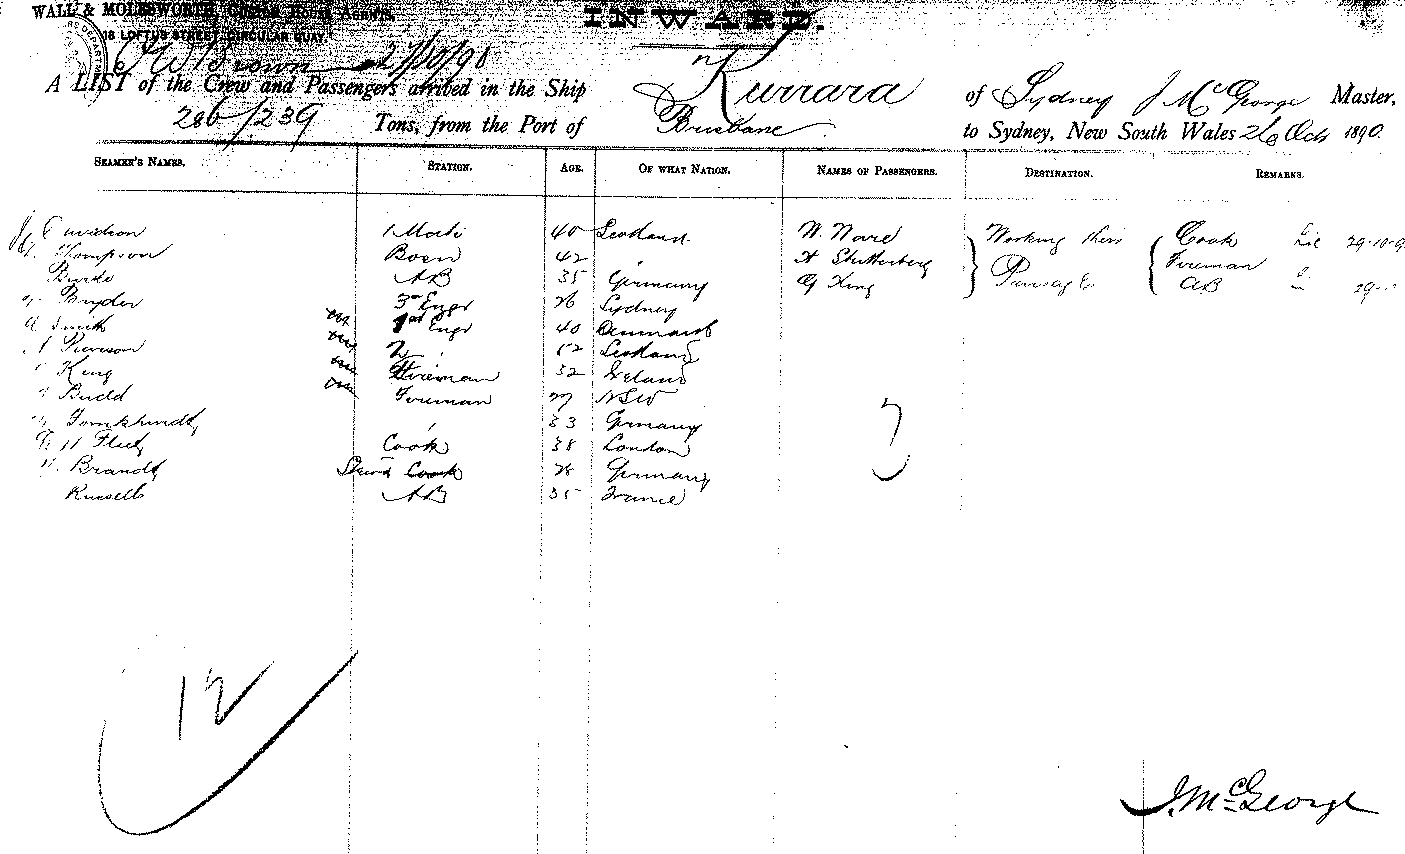 INWARD.
WALL & MOLESWORTH,
18 LOFTUS STREET, CIRCULAR QUAY
J W Brown 27/10/90
A LIST of the Crew and Passengers arrived in the Ship Kurrara of Sydney J McGeorge Master,
286/239 Tons, from the Port of Brisbane to Sydney, New South Wales 26 Oct 1890.
SEAMEN'S NAMES. STATION. AGE. OF WHAT NATION. NAMES OF PASSENGERS. DESTINATION. REMARKS.
Davidson 1 Mate 40 Scotland W. Ward Working their Cook 29-10-9
Thompson Bosn 42 Fireman
Burke AB 35 Germany G King Passage AB 29
Snyder 3rd Engr 26 Sydney
Smith 1st Engr 40 Denmark
Pearson 2 52 Scotland
King Fireman 32 Ireland
Budd Fireman 27 NSW
33 Germany
Cook 38 London
Brandt Cook 28 Germany
Russell AB 35 France
12
J. McGeorge